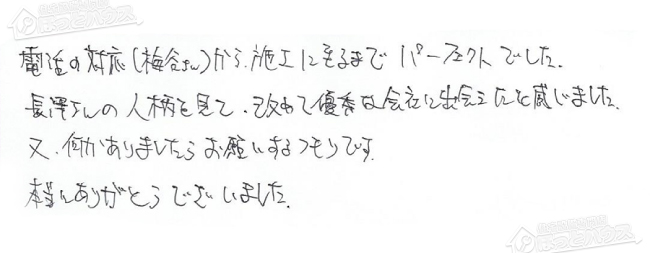 電話の対応(梅谷さん)から、施工に至るまで パーフェクトでした。
長澤さんの人柄を見て、改めて優秀な会社に出会えたと感じました。
又、何かありましたらお願いするつもりです。
本当にありがとうございました。